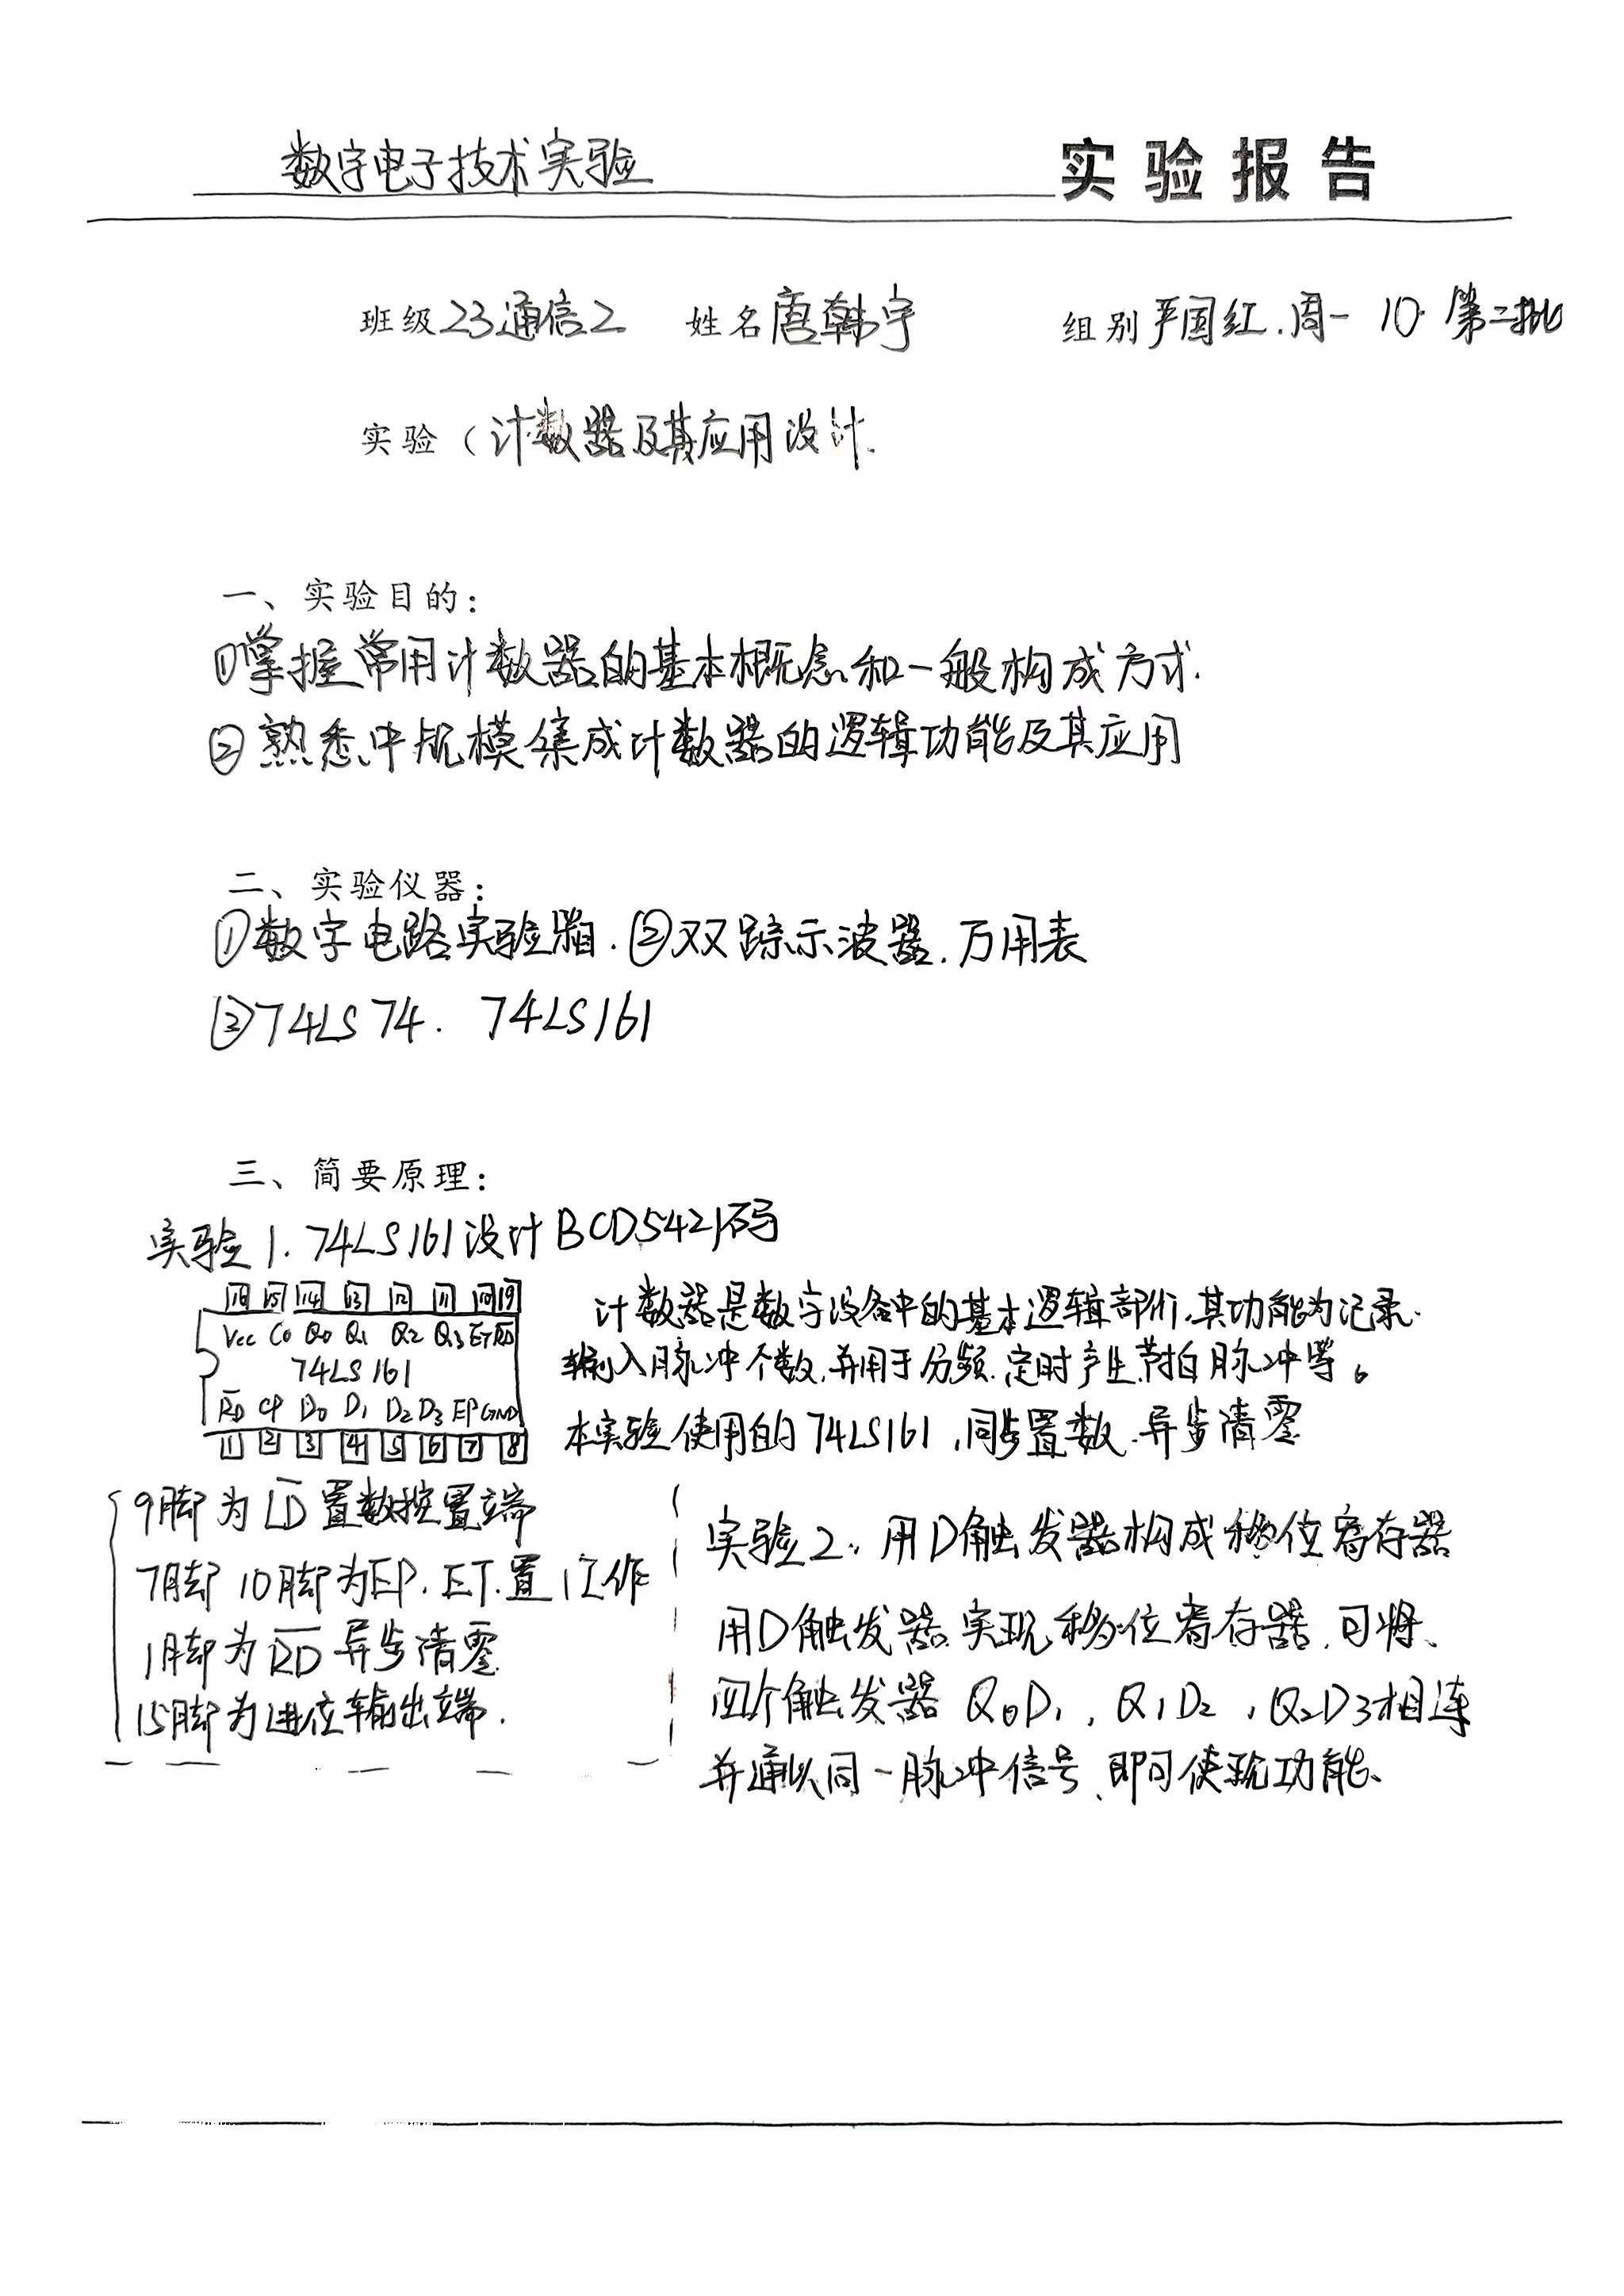 数字电子技术实验 实验报告
班级23通信2 姓名唐韩宇 组别严国红.周一 10. 第二批
实验(计数器及其应用设计.
一、实验目的:
①掌握常用计数器的基本概念和一般构成方式.
②熟悉中规模集成计数器的逻辑功能及其应用
二、实验仪器:
①数字电路实验箱.②双踪示波器.万用表
③74LS74. 74LS161
三、简要原理:
实验1.74LS161设计BCD5421码
16 15 14 13 12 11 10 9
Vcc C0 Q0 Q1 Q2 Q3 ET R̅D̅
74LS161
R̅D̅ CP D0 D1 D2 D3 EP GND
1 2 3 4 5 6 7 8
计数器是数字设备中的基本逻辑部件,其功能为记录.
输入脉冲个数,并用于分频.定时产生节拍脉冲等。
本实验使用的74LS161,同步置数.异步清零
9脚为L̅D̅置数控置端
7脚10脚为EP.ET.置1工作
1脚为R̅D̅异步清零
15脚为进位输出端.
实验2.用D触发器构成移位寄存器
用D触发器实现移位寄存器,可将、
四个触发器Q0D1,Q1D2,Q2D3相连
并通以同一脉冲信号、即可使现功能、